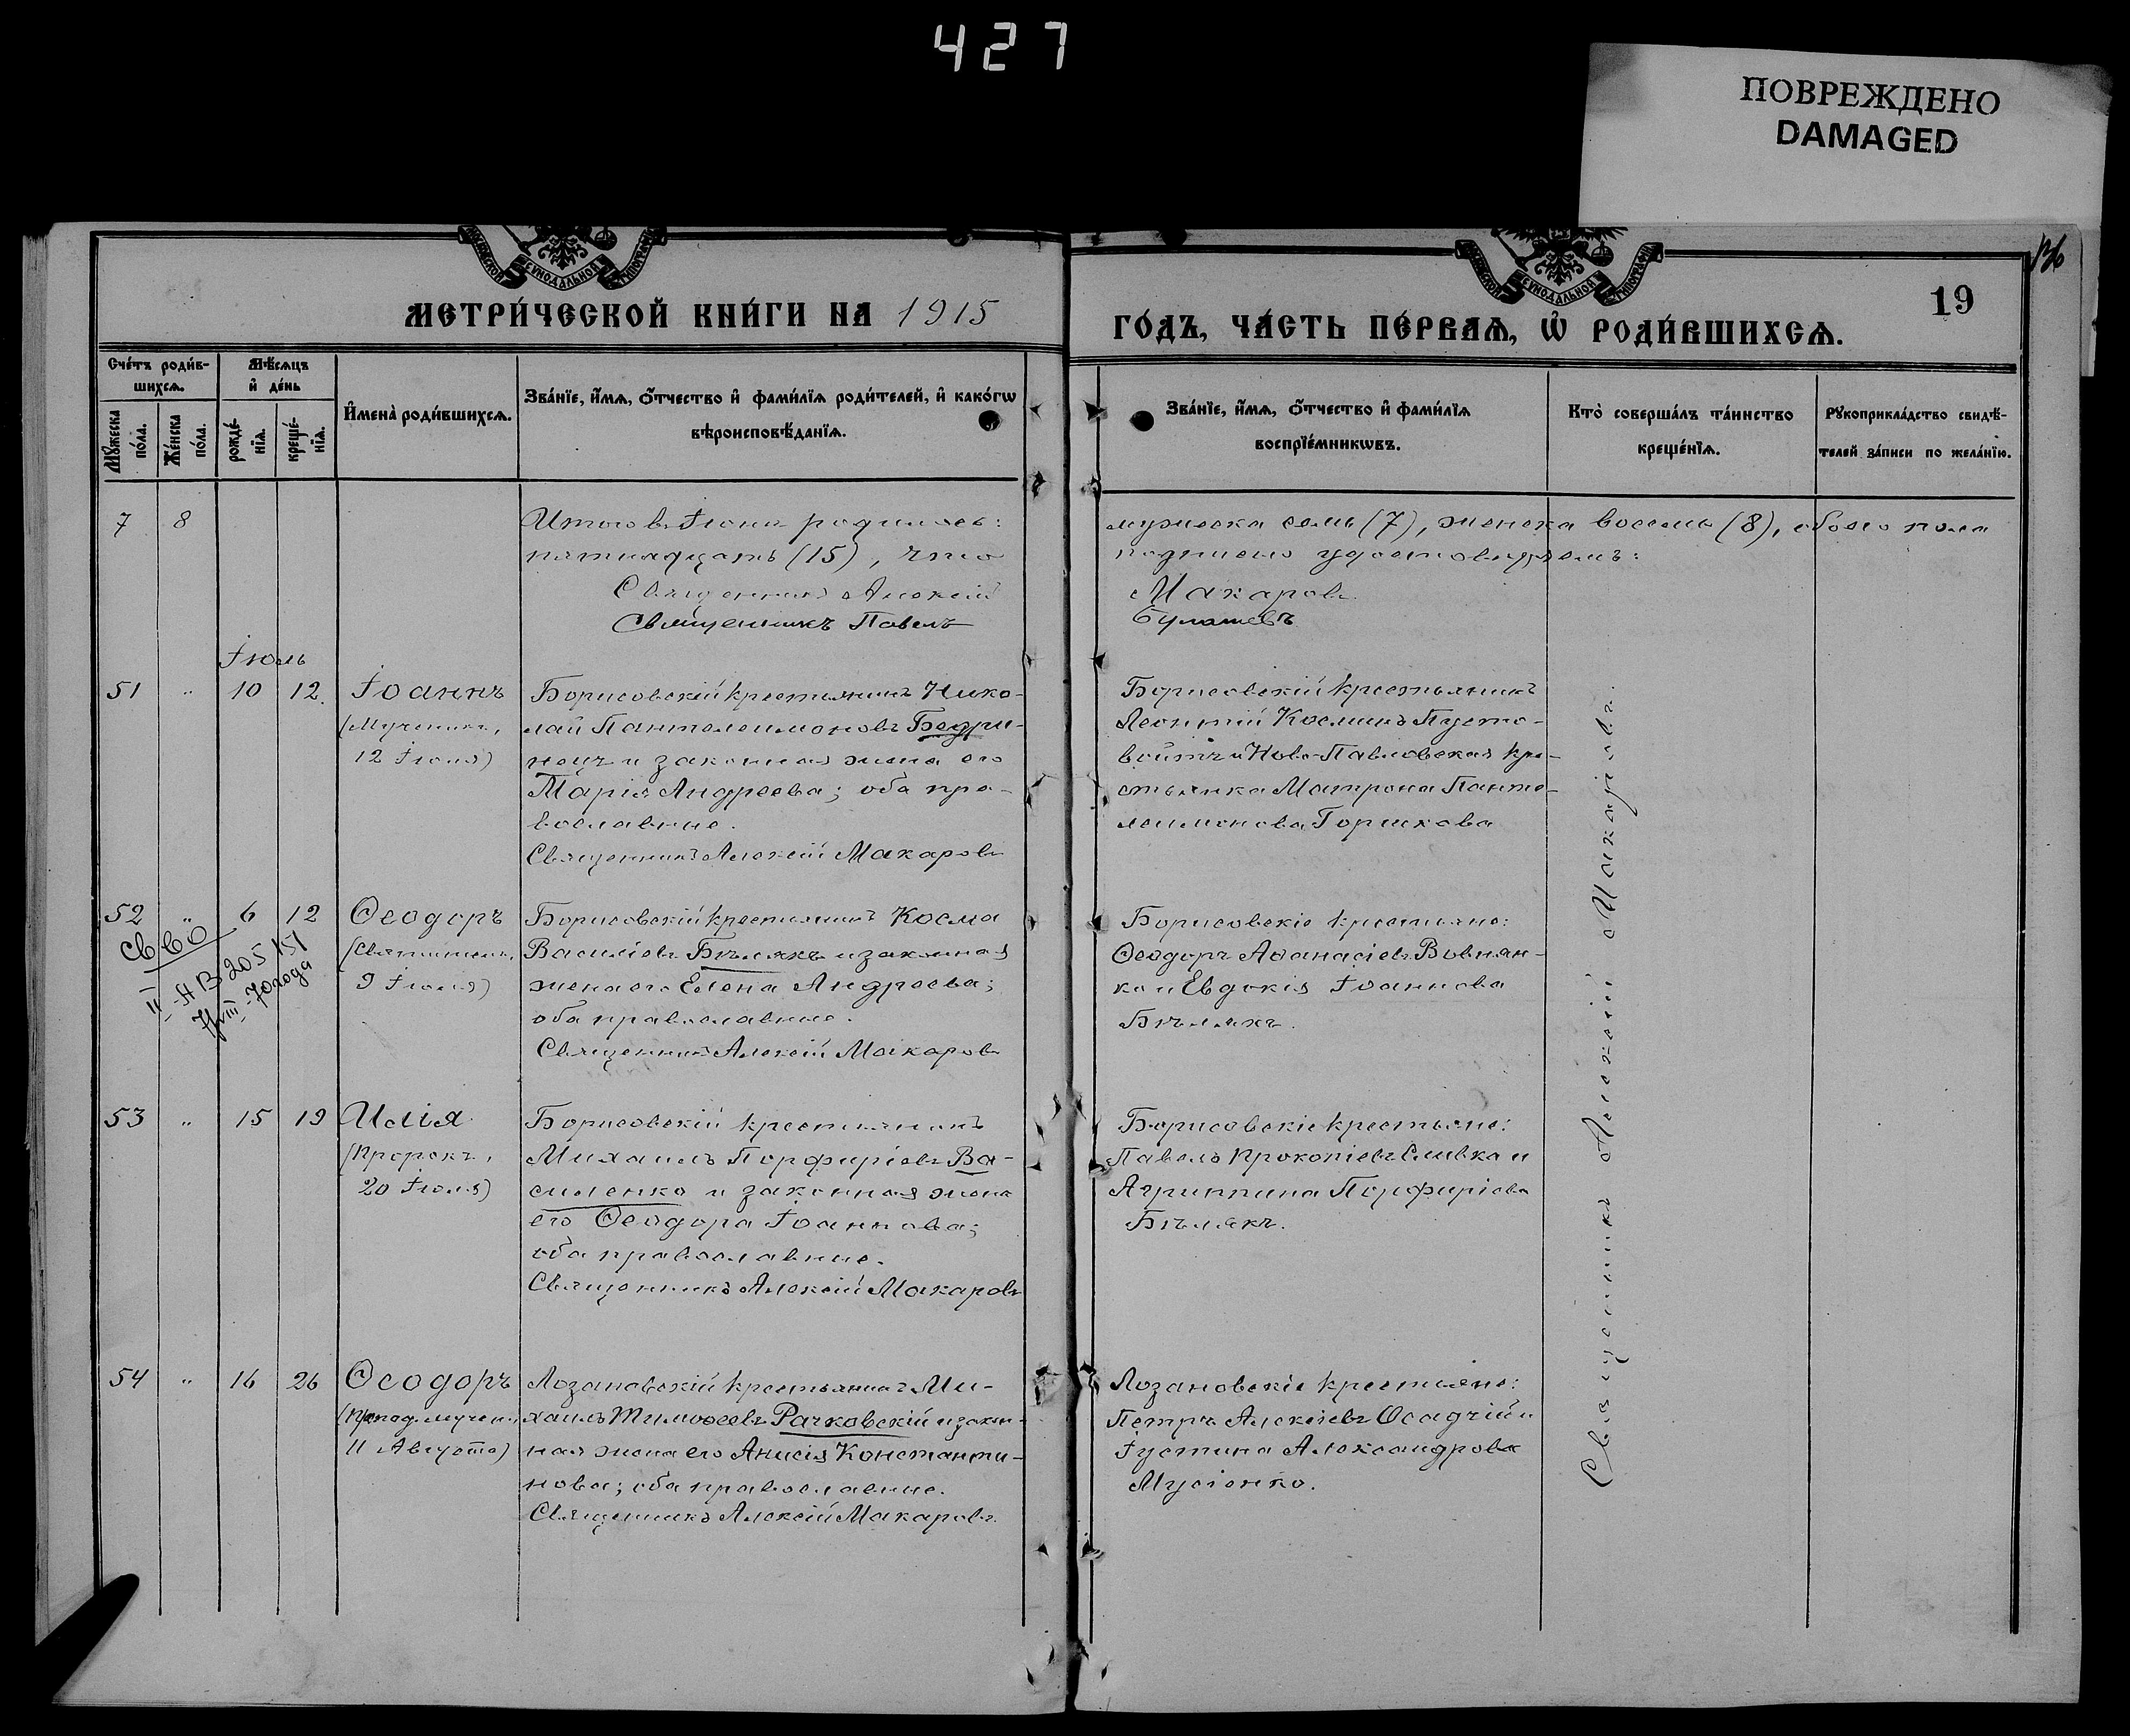 427
ПОВРЕЖДЕНО
DAMAGED
МОСКОВСКОЙ СѴНОДАЛЬНОЙ ТИПОГРАФІИ
МОСКОВСКОЙ СѴНОДАЛЬНОЙ ТИПОГРАФІИ
19
МЕТРИ́ЧЕСКОЙ КНИ́ГИ НА 1915
ГО́ДЪ, ЧА́СТЬ ПЕ́РВАѦ, Ѡ҆ РОДИ́ВШИХСѦ.
Сче́тъ роди́в-
шихсѧ.
Мѣ́сѧцъ
и҆ де́нь
Мꙋ́жеска
по́ла.
Же́нска
по́ла.
рожде́-
нїѧ.
креще́-
нїѧ.
И҆мена̀ роди́вшихсѧ.
Зва́нїе, и҆́мѧ, ѻ҆́тчество и҆ фами́лїѧ роди́телей, и҆ како́гѡ
вѣроисповѣ́данїѧ.
Зва́нїе, и҆́мѧ, ѻ҆́тчество и҆ фами́лїѧ
воспрїе́мникѡвъ.
Кто̀ соверша́лъ та́инство
креще́нїѧ.
Рꙋкоприкла́дство свидѣ́-
телей за́писи по жела́нїю.
7 8
Итого въ Іюнѣ родилось:
пятнадцать (15), что
Священникъ Алексій
Священникъ Павелъ
мужеска семь (7), женска восемь (8), обоего пола
подписью удостовѣряемъ:
Макаровъ
Булашевъ
Іюль
51 " 10 12.
Іоаннъ
(Мученикъ,
12 Іюля)
Борисовскій крестьянинъ Нико-
лай Пантелеимоновъ Бедри-
нецъ и законная жена его
Марія Андреева; оба пра-
вославные.
Священникъ Алексій Макаровъ
Борисовскій крестьянинъ
Леонтій Косминъ Пусто-
войтъ и Ново-Павловская кре-
стьянка Матрона Панте-
леимонова Горшкова
52 " 6 12
Св во
II-АВ 205151
Ѳеодоръ
(Святитель,
9 Іюля)
Борисовскій крестьянинъ Косма
Василіевъ Бѣлякъ и законная
жена его Елена Андреева;
оба православные.
Священникъ Алексій Макаровъ
Борисовскіе крестьяне:
Ѳеодоръ Аѳанасіевъ Вовнян-
ко и Евдокія Іоаннова
Бѣлякъ.
53 " 15 19
Илія
(Пророкъ,
20 Іюля)
Борисовскій крестьянинъ
Михаилъ Порфиріевъ Ва-
силенко и законная жена
его Ѳеодора Іоаннова;
оба православные.
Священникъ Алексій Макаровъ
Борисовскіе крестьяне:
Павелъ Прокопіевъ Сливка и
Агриппина Порфиріева
Бѣлякъ.
54 " 16 26
Ѳеодоръ
(Препод. мучен.,
11 Августа)
Лозановскій крестьянинъ Ми-
хаилъ Тимоѳеевъ Рачковскій и закон-
ная жена его Анисія Константи-
нова; оба православные.
Священникъ Алексій Макаровъ
Лозановскіе крестьяне:
Петръ Алексіевъ Осадчій и
Іустина Александрова
Мусіенко.
Священникъ Алексій Макаровъ.